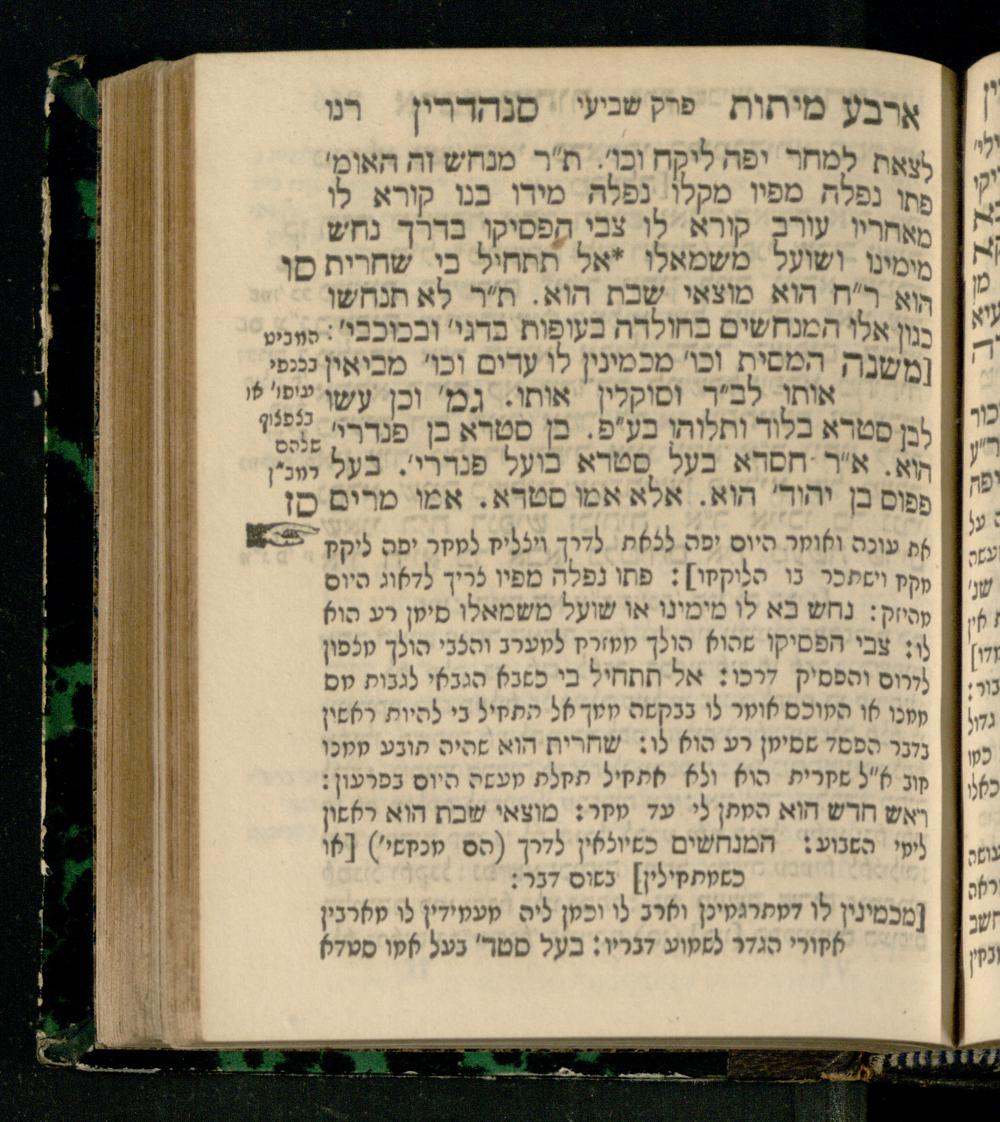 ארבע מיתות פרק שביעי סנהדרין רנו
לצאת למחר יפה ליקח וכו'. ת"ר מנחש זה האומ'
פתו נפלה מפיו מקלו נפלה מידו בנו קורא לו
מאחריו עורב קורא לו צבי הפסיקו בדרך נחש
מימינו ושועל משמאלו *אל תתחיל בי שחרית סו
הוא ר"ח הוא מוצאי שבת הוא. ת"ר לא תנחשו
כגון אלו המנחשים בחולדה בעופות בדגי' ובכוכבי':
[משנה המסית וכו' מכמינין לו עדים וכו' מביאין
אותו לב"ד וסוקלין אותו. גמ' וכן עשו
לבן סטרא בלוד ותלוהו בע"פ. בן סטרא בן פנדרי'
הוא. א"ר חסדא בעל סטרא בועל פנדרי'. בעל
פפוס בן יהוד' הוא. אלא אמו סטרא. אמו מרים סז
המביט
בכנפי
שלהם
רמב"ן
את עונה ואומר היום יפה לצאת לדרך ויצליח למחר יפה ליקח
מקח וישתכר בו הלוקחו]: פתו נפלה מפיו צריך לדאוג היום
מהיזק: נחש בא לו מימינו או שועל משמאלו סימן רע הוא
לו: צבי הפסיקו שהוא הולך ממזרח למערב והצבי הולך מצפון
לדרום והפסיק דרכו: אל תתחיל בי כשבא הגבאי לגבות מס
ממנו או המוכס אומר לו בבקשה ממך אל התחיל בי להיות ראשון
בדבר הפסד שסימן רע הוא לו: שחרית הוא שהיה תובע ממנו
חוב א"ל שחרית הוא ולא אתחיל תחלת מעשה היום בפרעון:
ראש חדש הוא המתן לי עד מחר: מוצאי שבת הוא ראשון
לימי השבוע: המנחשים כשיוצאין לדרך (הם מנחשי') [או
כשמתחילין] בשום דבר:
[מכמינין לו דמתרגמינן וארב לו וכמן ליה מעמידין לו מארבין
אחורי הגדר לשמוע דבריו: בעל סטד' בעל אמו סטדא